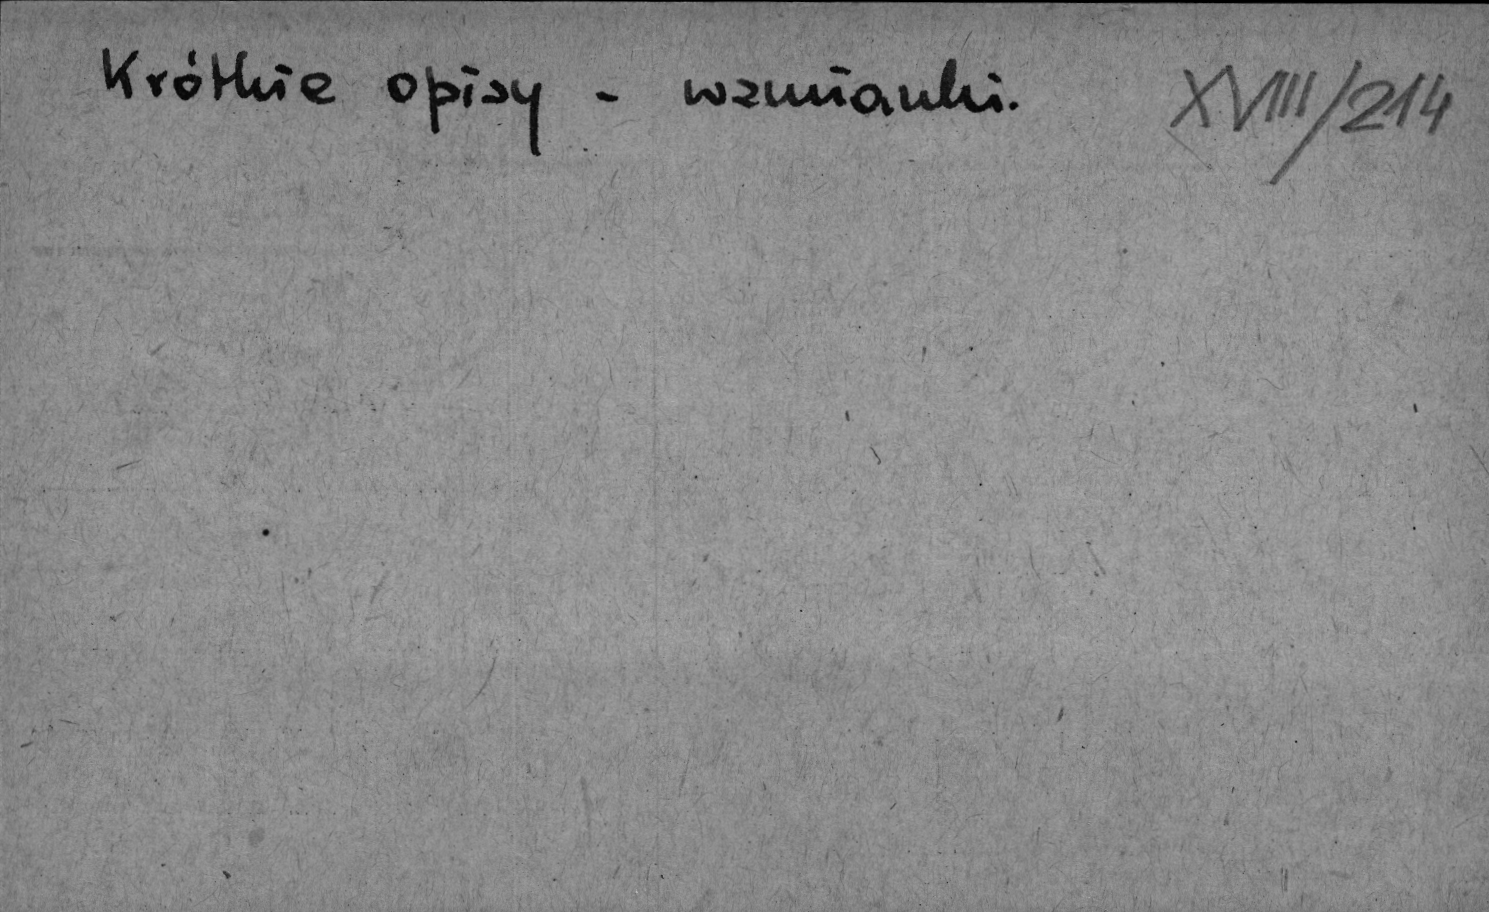 Krótkie opisy - wzmianki. XVIII/214